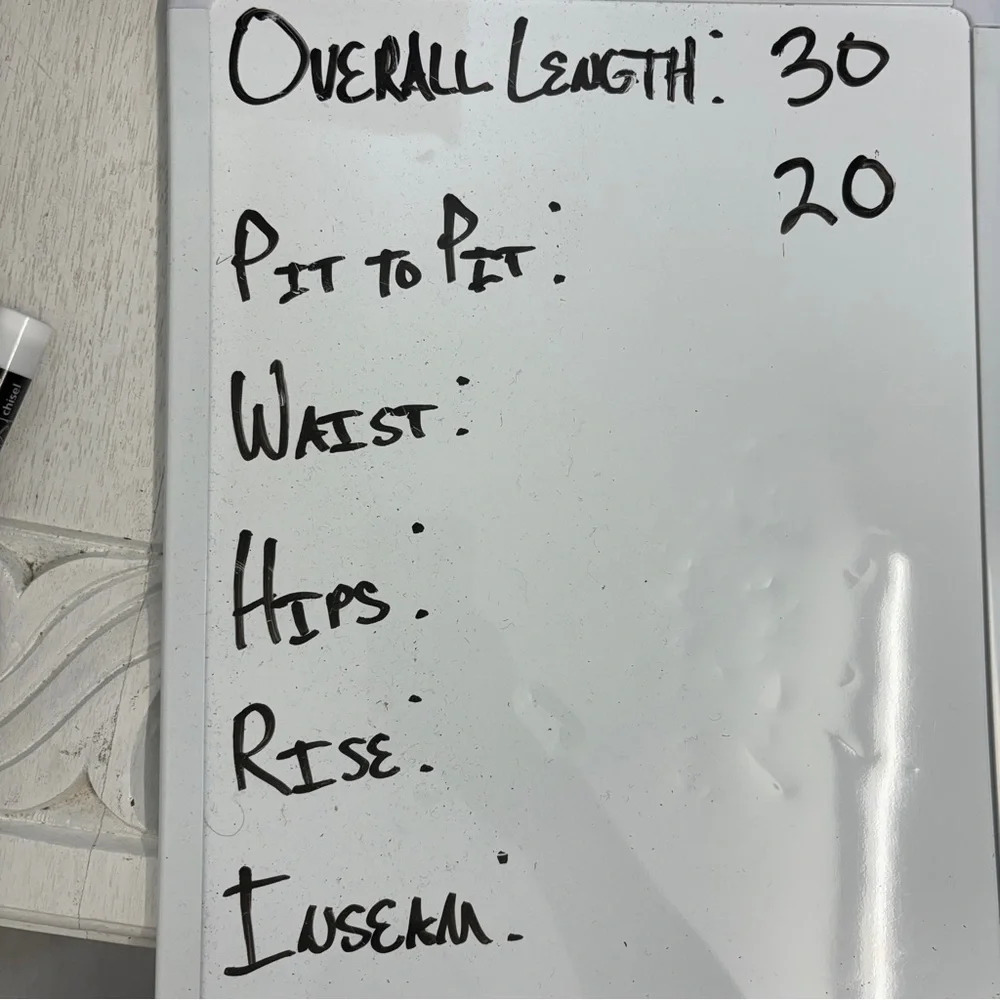 OVERALL LENGTH: 30
20
PIT TO PIT:
WAIST:
HIPS:
RISE:
INSEAM:
chisel